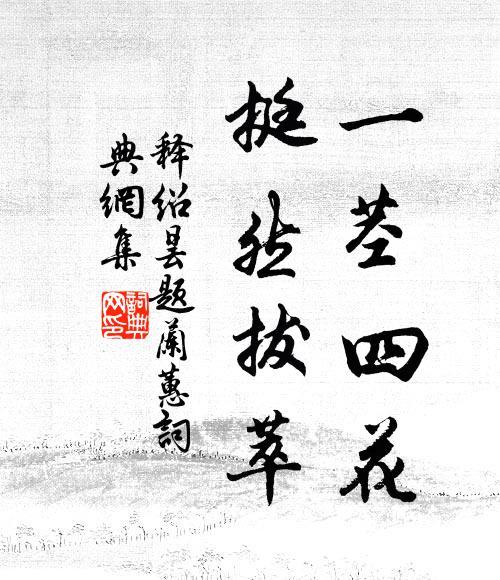 一茎四花
挺然拔萃
释绍昙题兰蕙詞
典網集
詞典网印